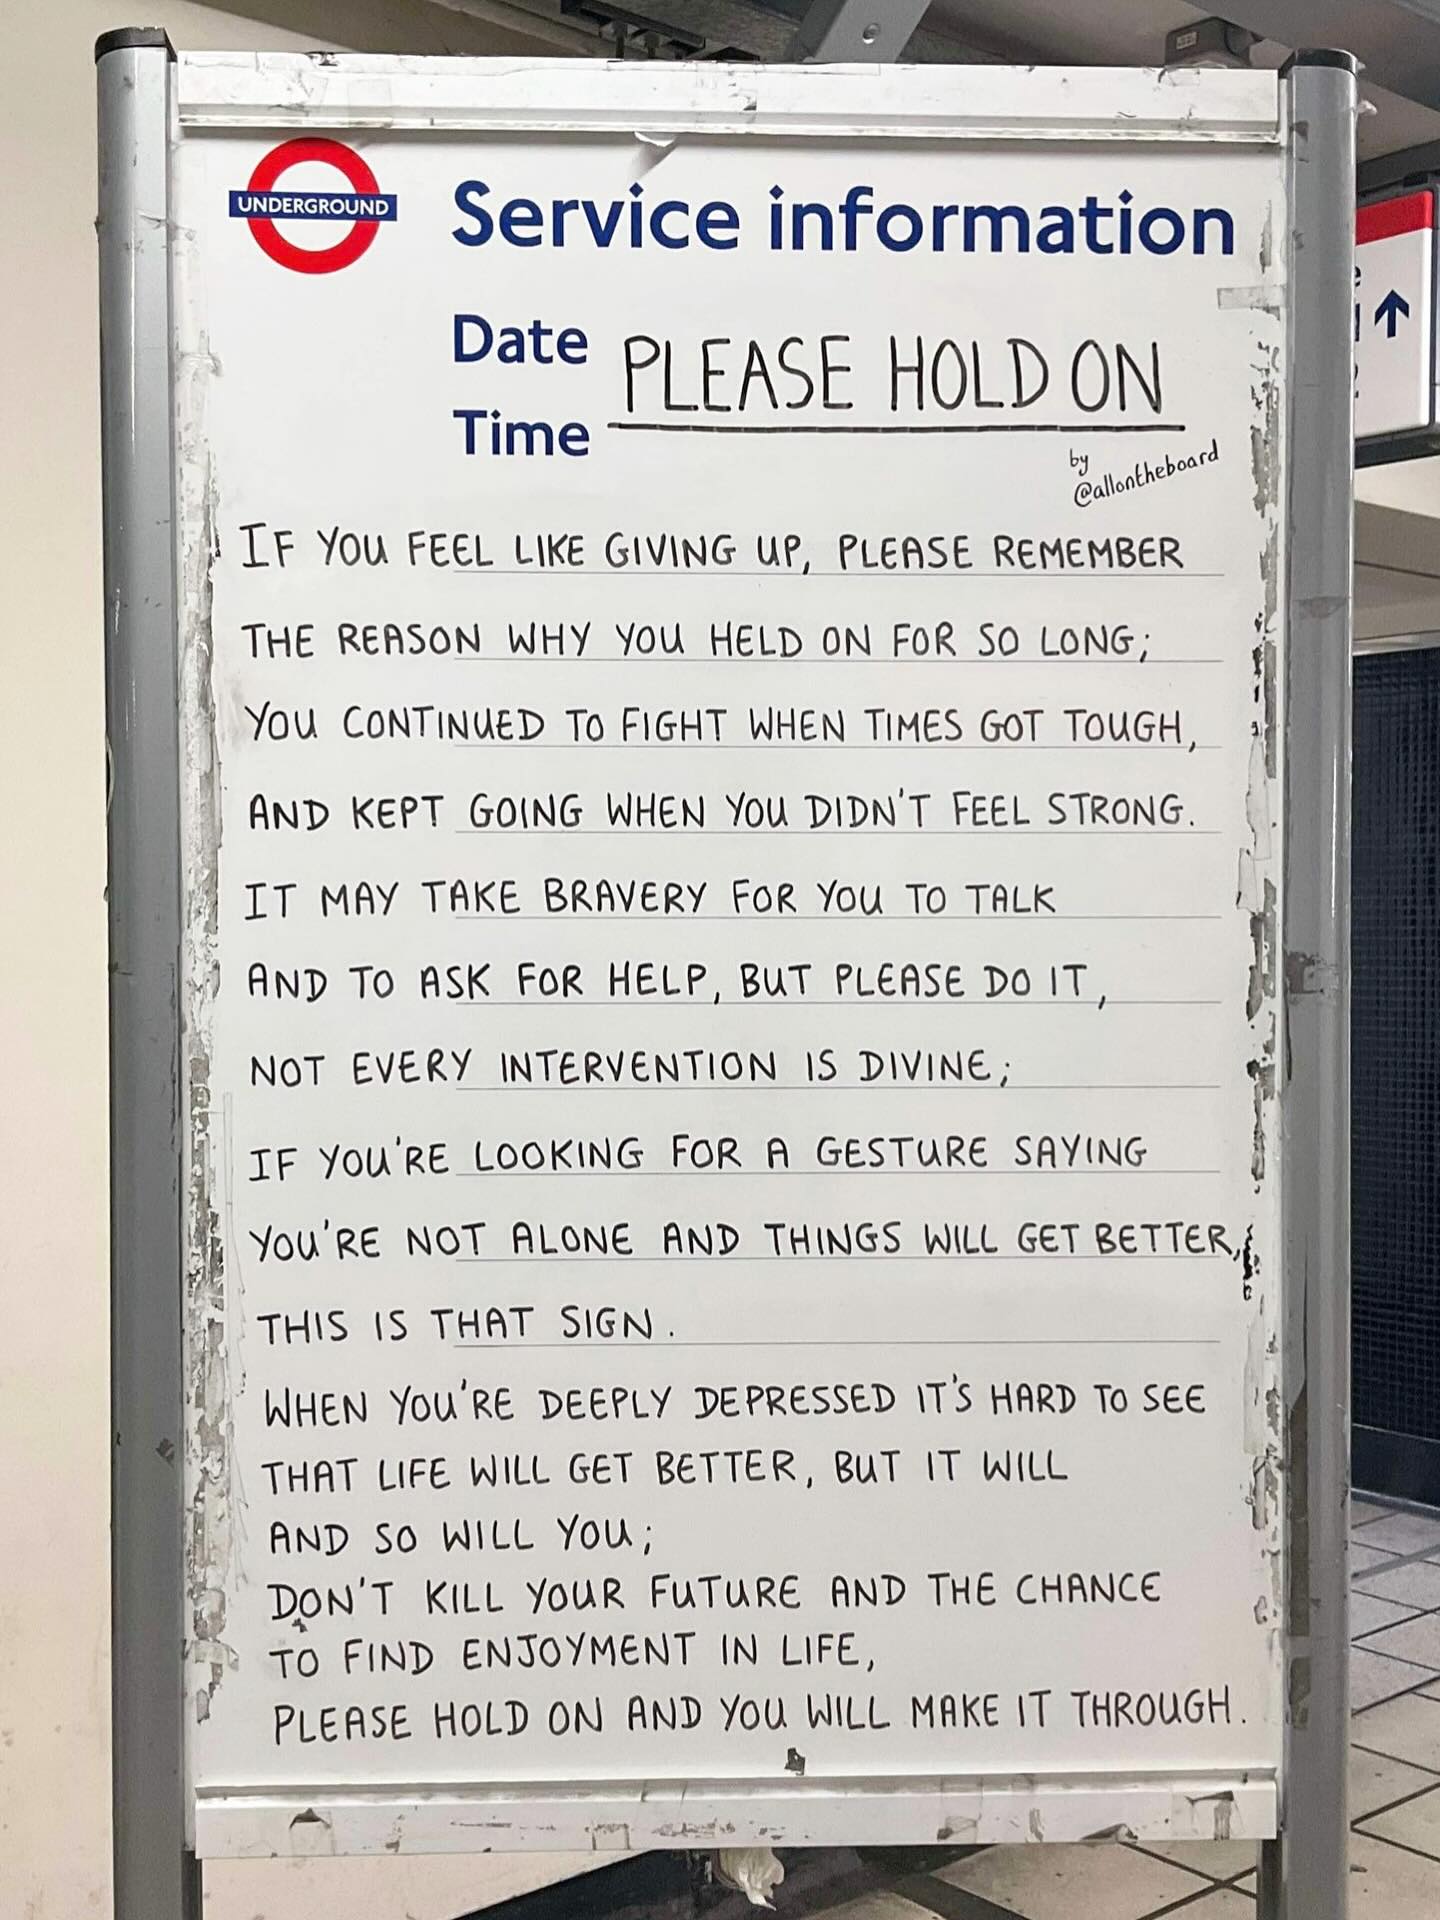 UNDERGROUND
Service information
Date
PLEASE HOLD ON
Time
by
@allontheboard
IF YOU FEEL LIKE GIVING UP, PLEASE REMEMBER
THE REASON WHY YOU HELD ON FOR SO LONG;
YOU CONTINUED TO FIGHT WHEN TIMES GOT TOUGH,
AND KEPT GOING WHEN YOU DIDN'T FEEL STRONG.
IT MAY TAKE BRAVERY FOR YOU TO TALK
AND TO ASK FOR HELP, BUT PLEASE DO IT,
NOT EVERY INTERVENTION IS DIVINE;
IF YOU'RE LOOKING FOR A GESTURE SAYING
YOU'RE NOT ALONE AND THINGS WILL GET BETTER,
THIS IS THAT SIGN.
WHEN YOU'RE DEEPLY DEPRESSED IT'S HARD TO SEE
THAT LIFE WILL GET BETTER, BUT IT WILL
AND SO WILL YOU;
DON'T KILL YOUR FUTURE AND THE CHANCE
TO FIND ENJOYMENT IN LIFE,
PLEASE HOLD ON AND YOU WILL MAKE IT THROUGH.